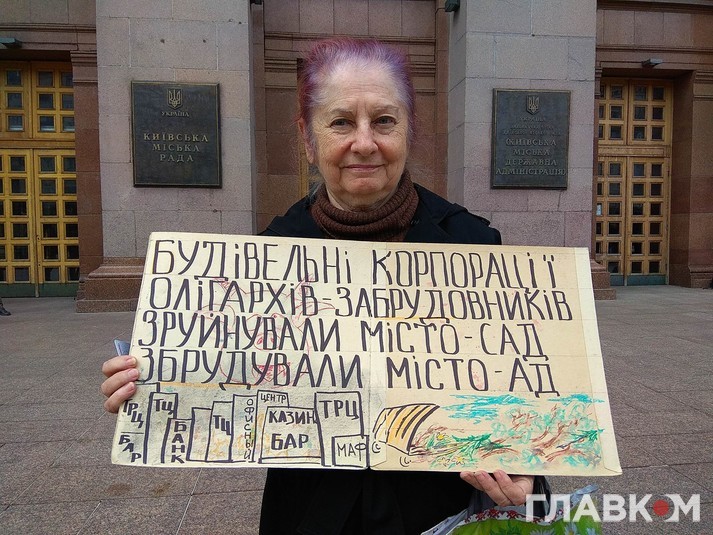 УКРАЇНА
КИЇВСЬКА
МІСЬКА
РАДА
КИЇВСЬКА
МІСЬКА
ДЕРЖАВНА
АДМІНІСТРАЦІЯ
БУДІВЕЛЬНІ КОРПОРАЦІЇ
ОЛІГАРХІВ-ЗАБРУДОВНИКІВ
ЗРУЙНУВАЛИ МІСТО-САД
ЗБРУДУВАЛИ МІСТО-АД
ТРЦ
БАР
ТЦ
БАНК
ТЦ
ОФИСНЫЙ
ЦЕНТР
КАЗИН
БАР
ТРЦ
МАФ
ГЛАВКОМ